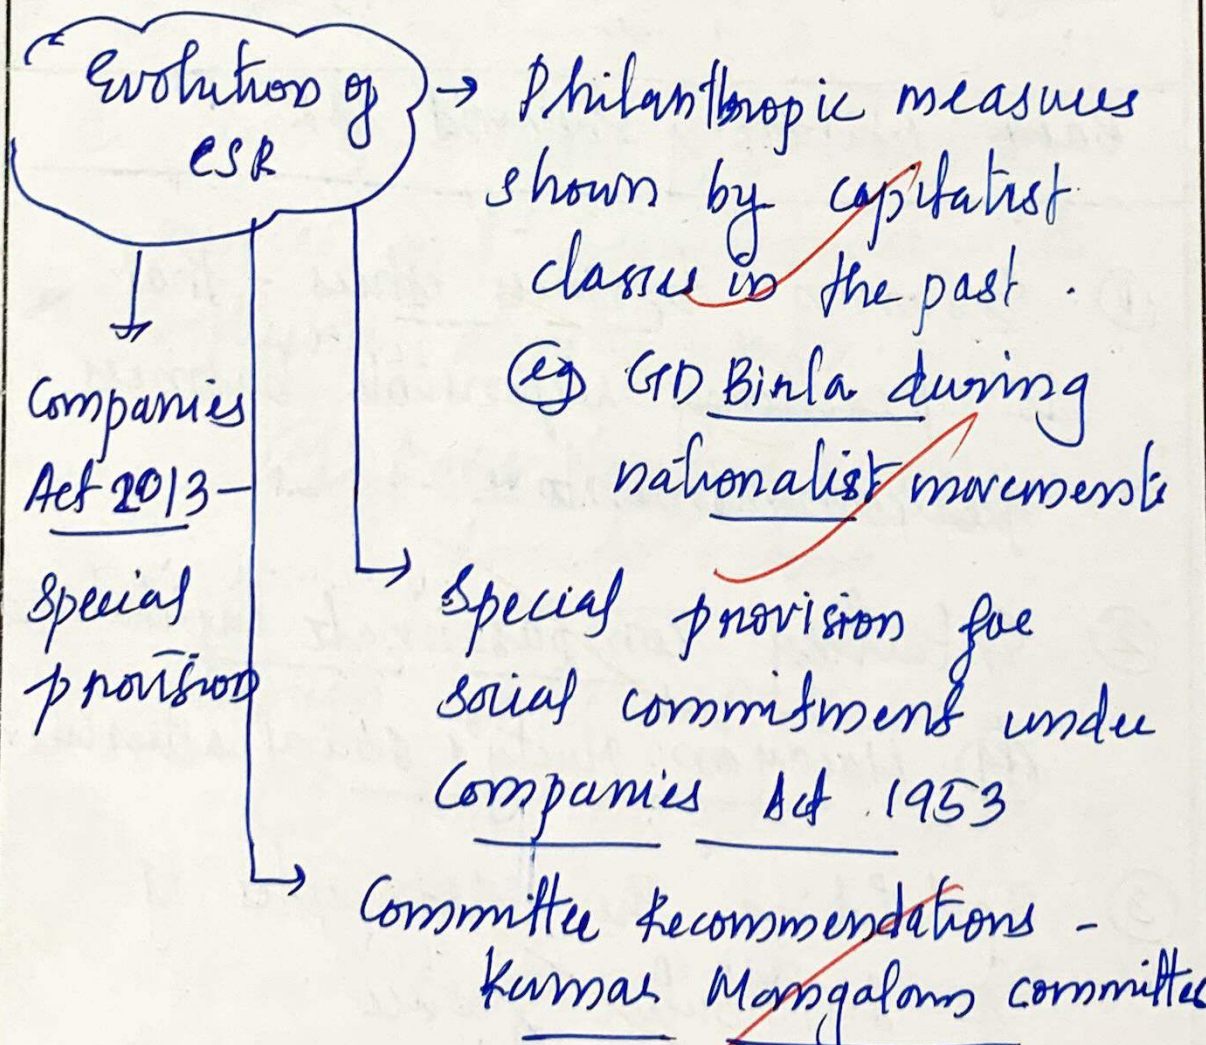 Evolution of
CSR
Philanthropic measures
shown by capitalist
classes in the past.
eg GD Birla during
nationalist movements
Companies
Act 2013 -
Special
provision
Special provision for
social commitment under
Companies Act 1953
Committee Recommendations -
Kumar Mangalam committee